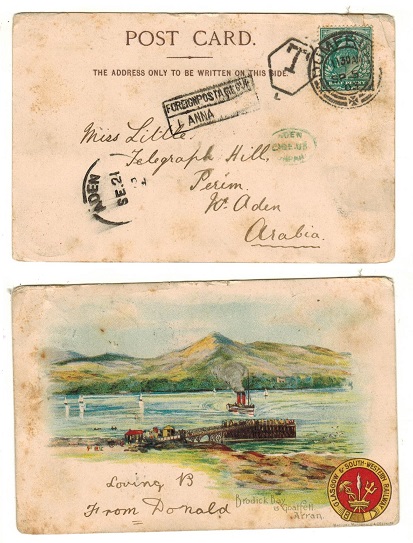 POST CARD.
THE ADDRESS ONLY TO BE WRITTEN ON THIS SIDE.
T
FOREIGN POSTAGE DUE
1 ANNA
Miss Little.
Telegraph Hill,
Perim,
Nr. Aden
Arabia.
ADEN
SE.21
Loving B
From Donald
Brodick Bay
& Goatfell
Arran.
GLASGOW & SOUTH-WESTERN RAILWAY